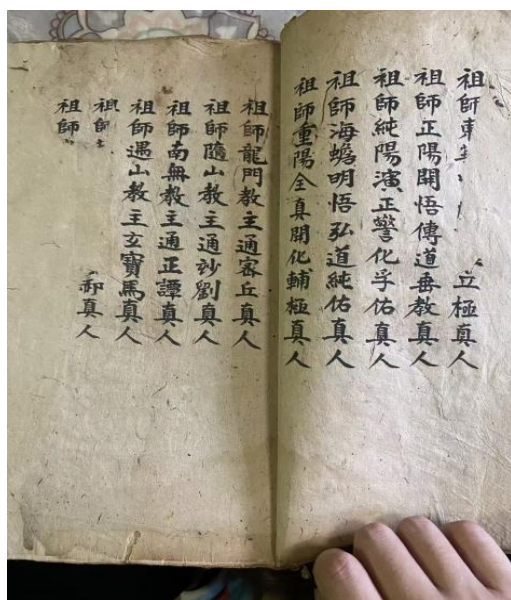 祖師東 立極真人
祖師正陽開悟傳道垂教真人
祖師純陽演正警化孚佑真人
祖師海蟾明悟弘道純佑真人
祖師重陽全真開化輔極真人
祖師龍門教主通密丘真人
祖師隨山教主通玅劉真人
祖師南無教主通正譚真人
祖師遇山教主玄寶馬真人
祖師 郝真人
祖師